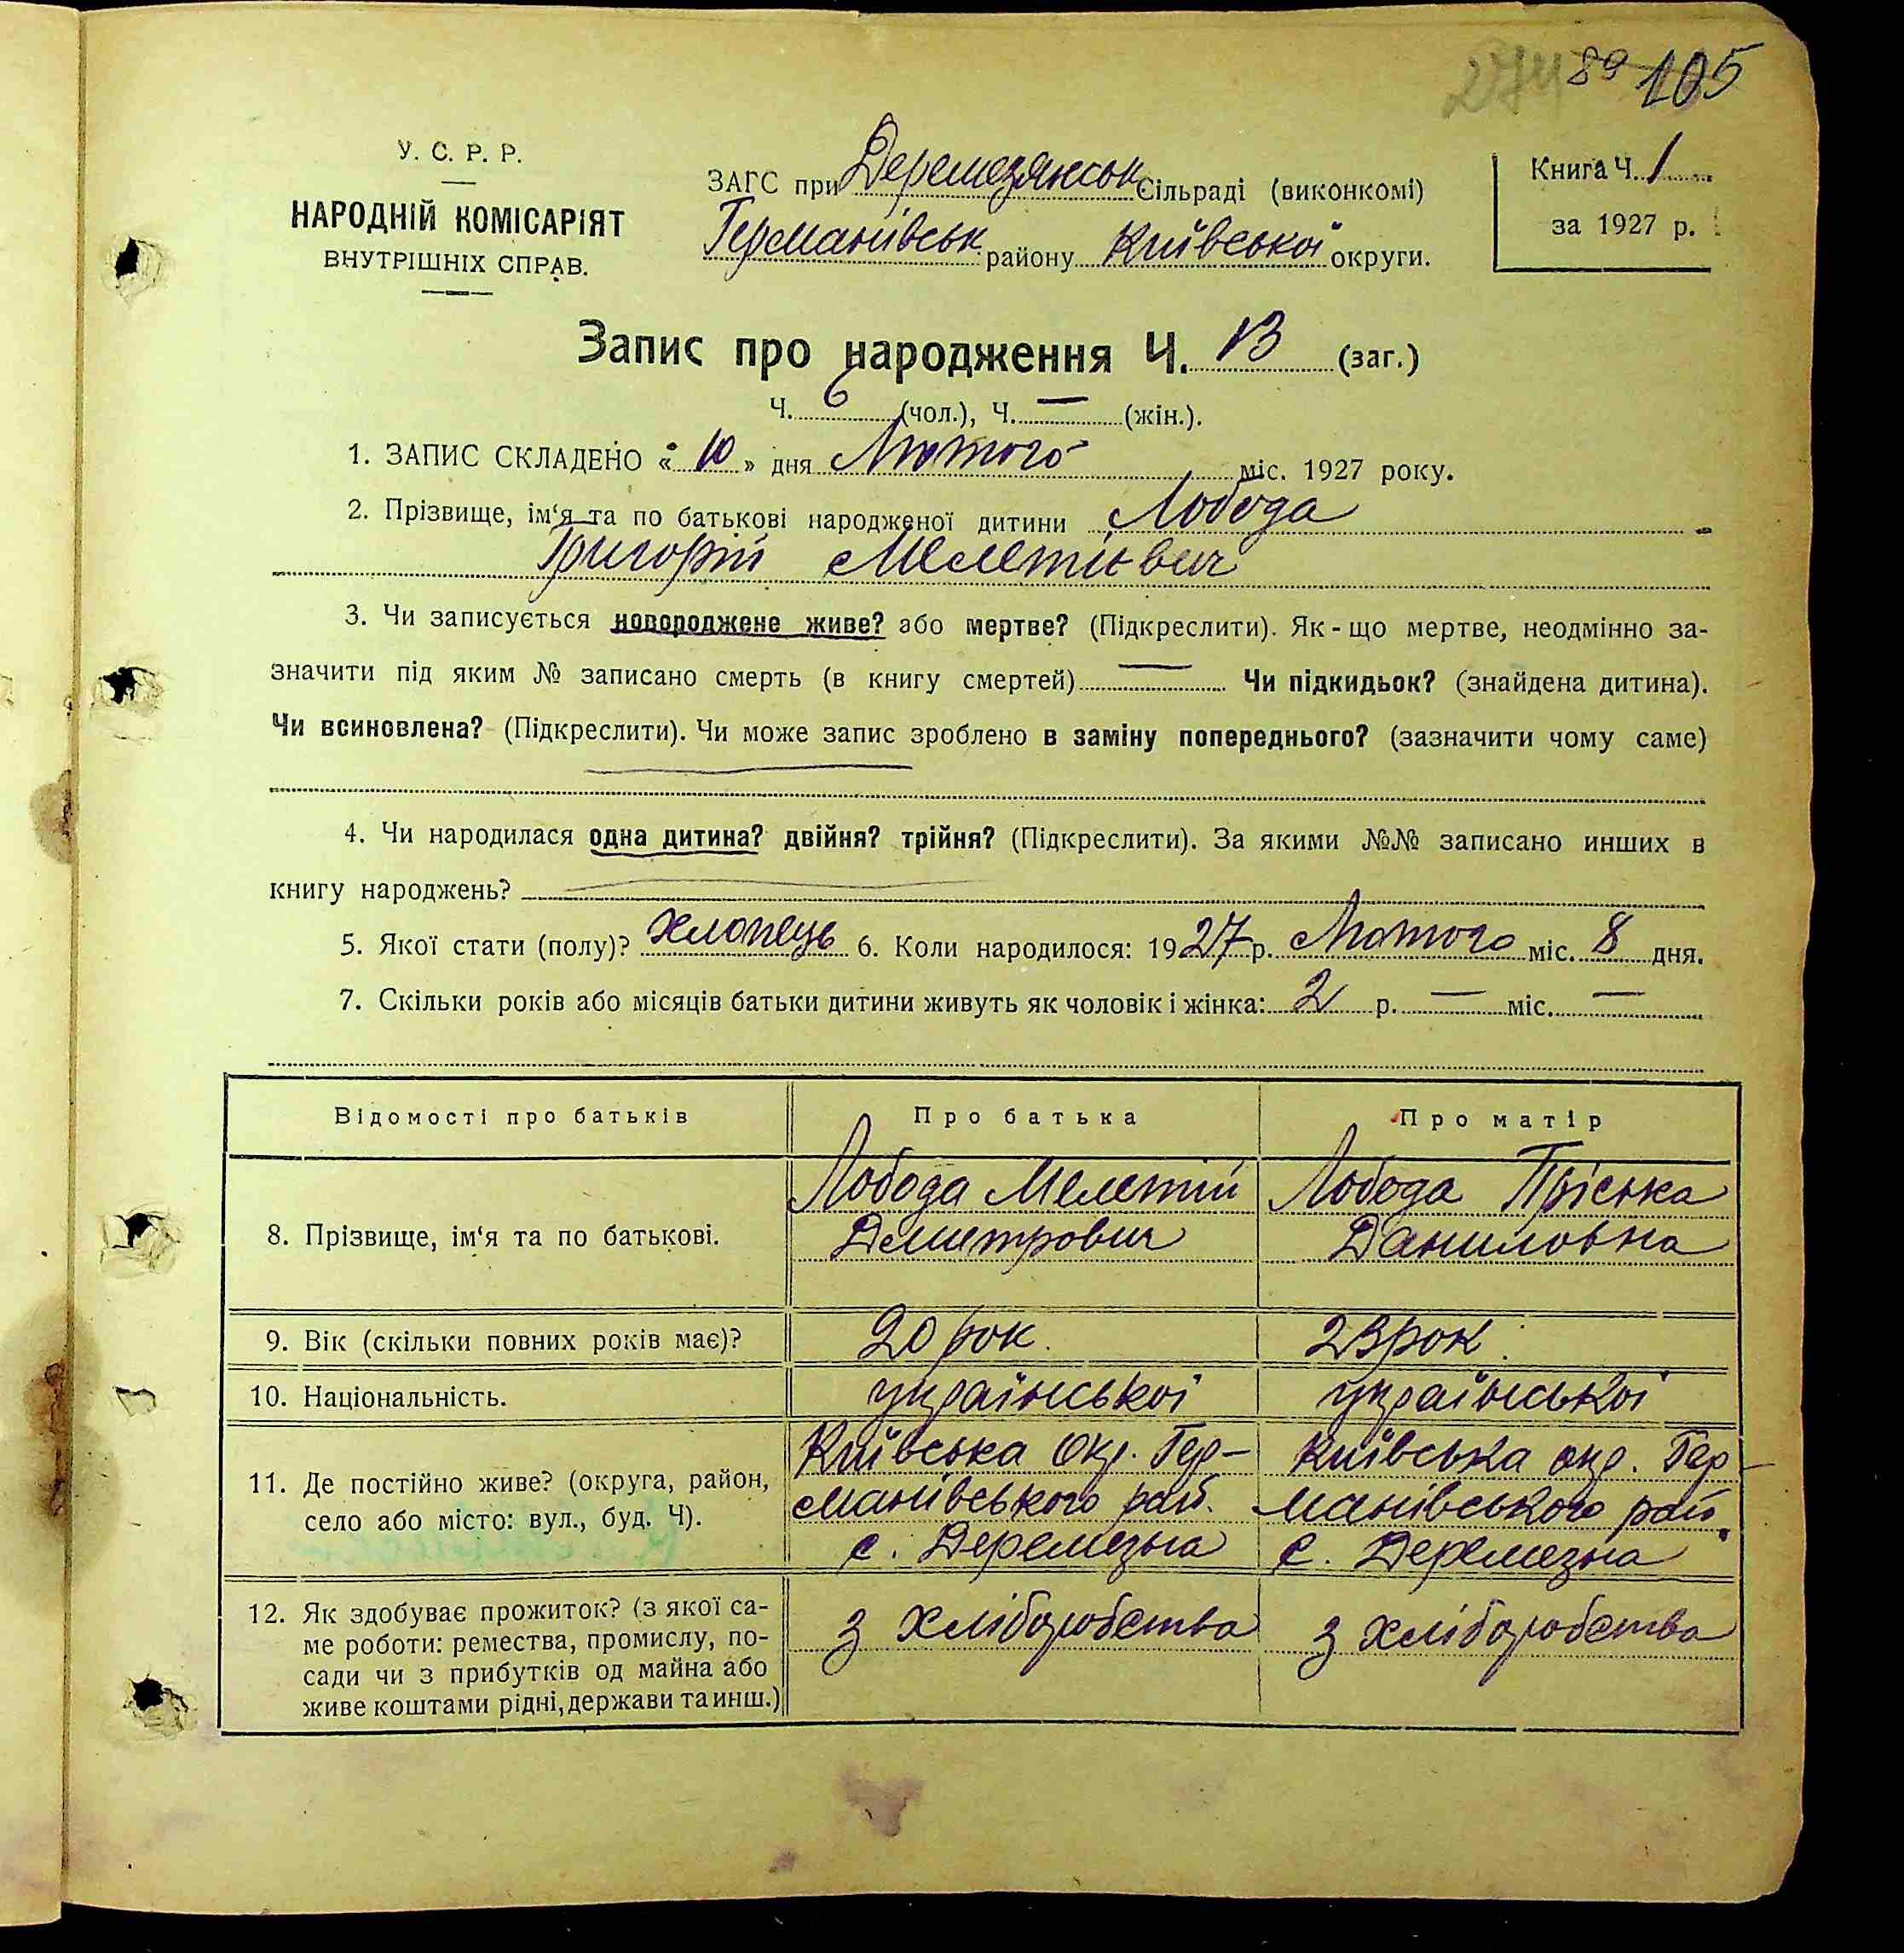 274 89 105
У. С. Р. Р.
НАРОДНІЙ КОМІСАРІЯТ
ВНУТРІШНІХ СПРАВ.
ЗАГС при Деремезянськ Сільраді (виконкомі)
Германівськ району Київської округи.
Книга Ч. 1
за 1927 р.
Запис про народження Ч. 13 (заг.)
Ч. 6 (чол.), Ч. — (жін.).
1. ЗАПИС СКЛАДЕНО « 10 » дня Лютого міс. 1927 року.
2. Прізвище, ім‘я та по батькові народженої дитини Лобода
Григорій Мелетієвич
3. Чи записується новороджене живе? або мертве? (Підкреслити). Як-що мертве, неодмінно за-
значити під яким № записано смерть (в книгу смертей) — Чи підкидьок? (знайдена дитина).
Чи всиновлена? (Підкреслити). Чи може запис зроблено в заміну попереднього? (зазначити чому саме)
4. Чи народилася одна дитина? двійня? трійня? (Підкреслити). За якими №№ записано инших в
книгу народжень?
5. Якої стати (полу)? хлопець 6. Коли народилося: 1927 р. Лютого міс. 8 дня.
7. Скільки років або місяців батьки дитини живуть як чоловік і жінка: 2 р. — міс. —
Відомості про батьків
Про батька
Про матір
8. Прізвище, ім‘я та по батькові.
Лобода Мелетій
Демитрович
Лобода Пріська
Даниловна
9. Вік (скільки повних років має)?
20 рок.
23 рок.
10. Національність.
української
української
11. Де постійно живе? (округа, район,
село або місто: вул., буд. Ч).
Київська окр. Гер-
манівського рай.
с. Деремезна
Київська окр. Гер-
манівського рай.
с. Деремезна
12. Як здобуває прожиток? (з якої са-
ме роботи: ремества, промислу, по-
сади чи з прибутків од майна або
живе коштами рідні, держави та инш.)
з хліборобства
з хліборобства